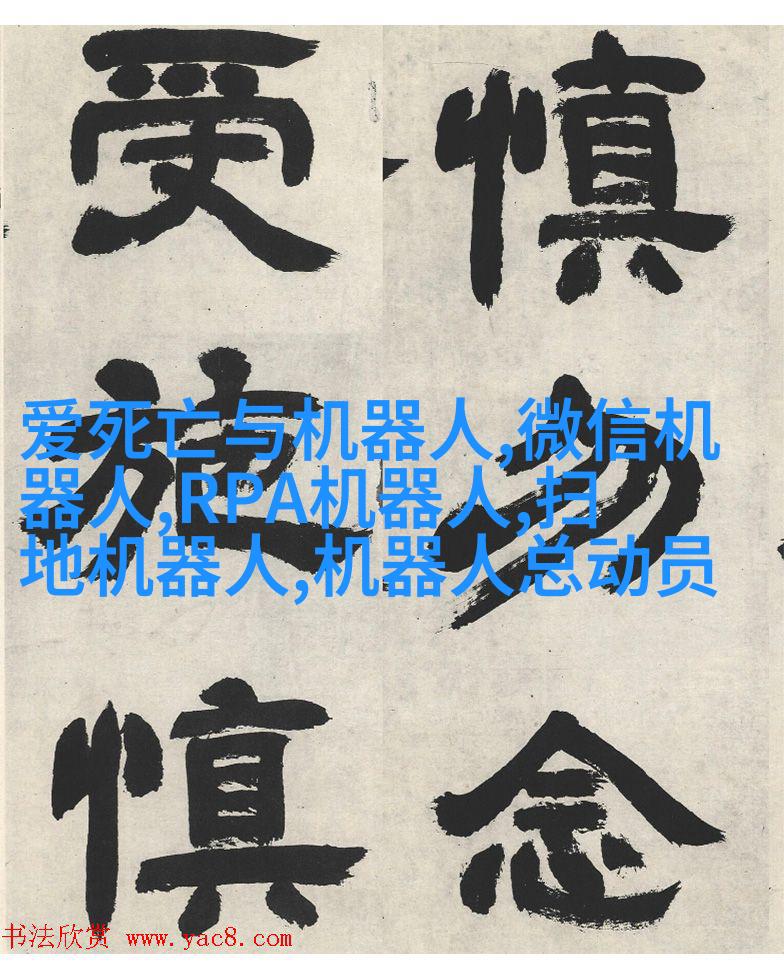 慎勿念
受施慎
爱死亡与机器人,微信机
器人,RPA机器人,扫
地机器人,机器人总动员
书法欣赏 www.yac8.com